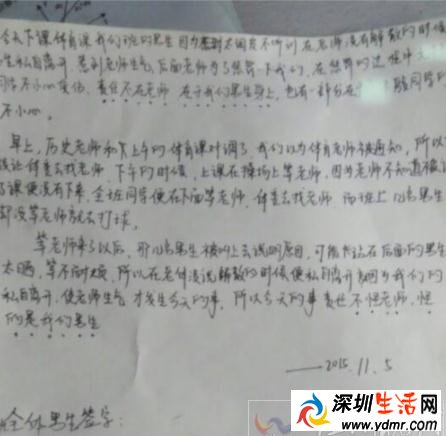 今天下课体育课我们班的男生因为 太阳 在老师没有解散的时候
私自离开,惹到老师生气,后面老师为了惩罚一下我们,在惩罚的过程中
同学不小心受伤,责任不在老师 在于我们男生身上,也有一部份在 同学的
不小心。
早上,历史老师和下午的体育课对调了 我们以为体育老师被通知,所以
没让体委去找老师,下午的时候,上课在操场上等老师,因为老师不知道被
了课便没有下来,全班同学便在下面等老师,体委去找老师 而班上几名男生
却没等老师就去打球。
等老师来了以后,那几名男生被叫上去说明原因,可能 站在后面的男生
太晒,等不耐烦,所以在老师没说解散的时候便私自离开 因为我们的
私自离开,使老师生气 才发生今天的事,所以今天的事 责任不怪老师,怪
的是我们男生
——2015.11.5
全体男生签字:
深圳生活网
www.ydmr.com